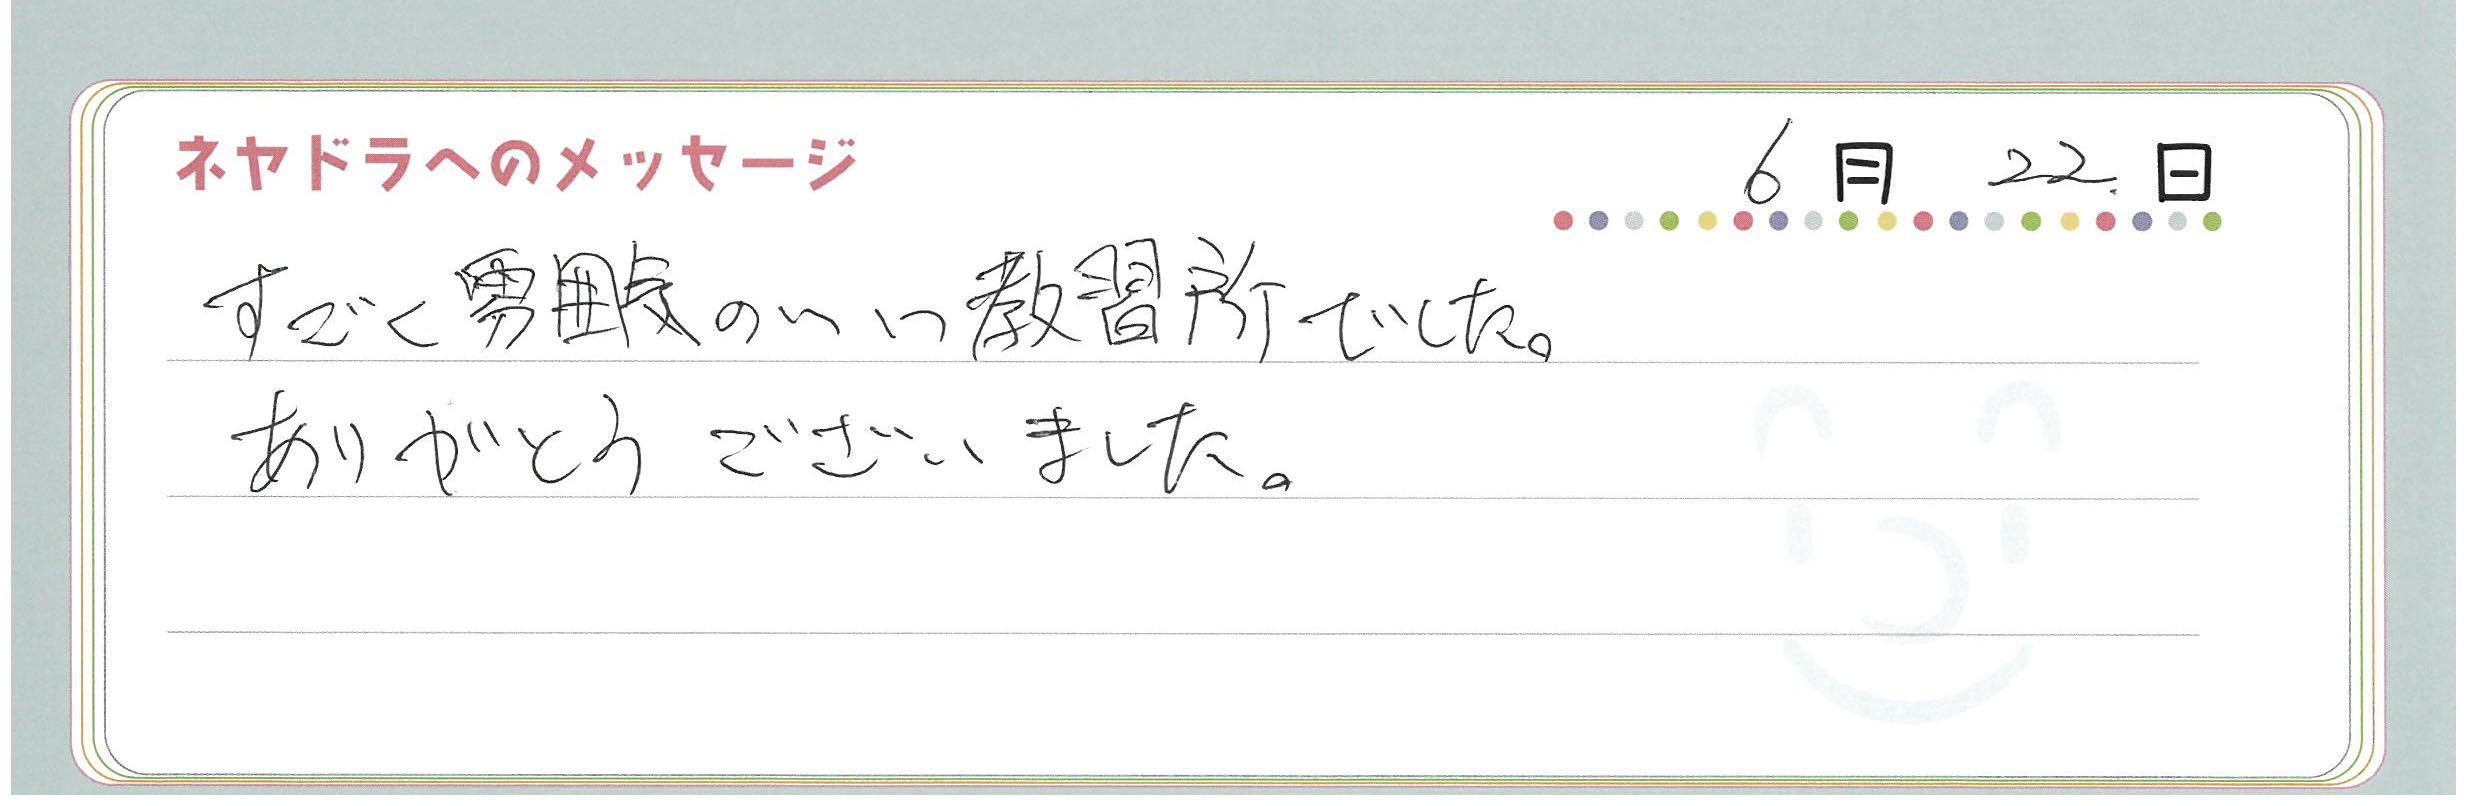 ネヤドラへのメッセージ
6月 22日
すごく雰囲気のいい教習所でした。
ありがとうございました。